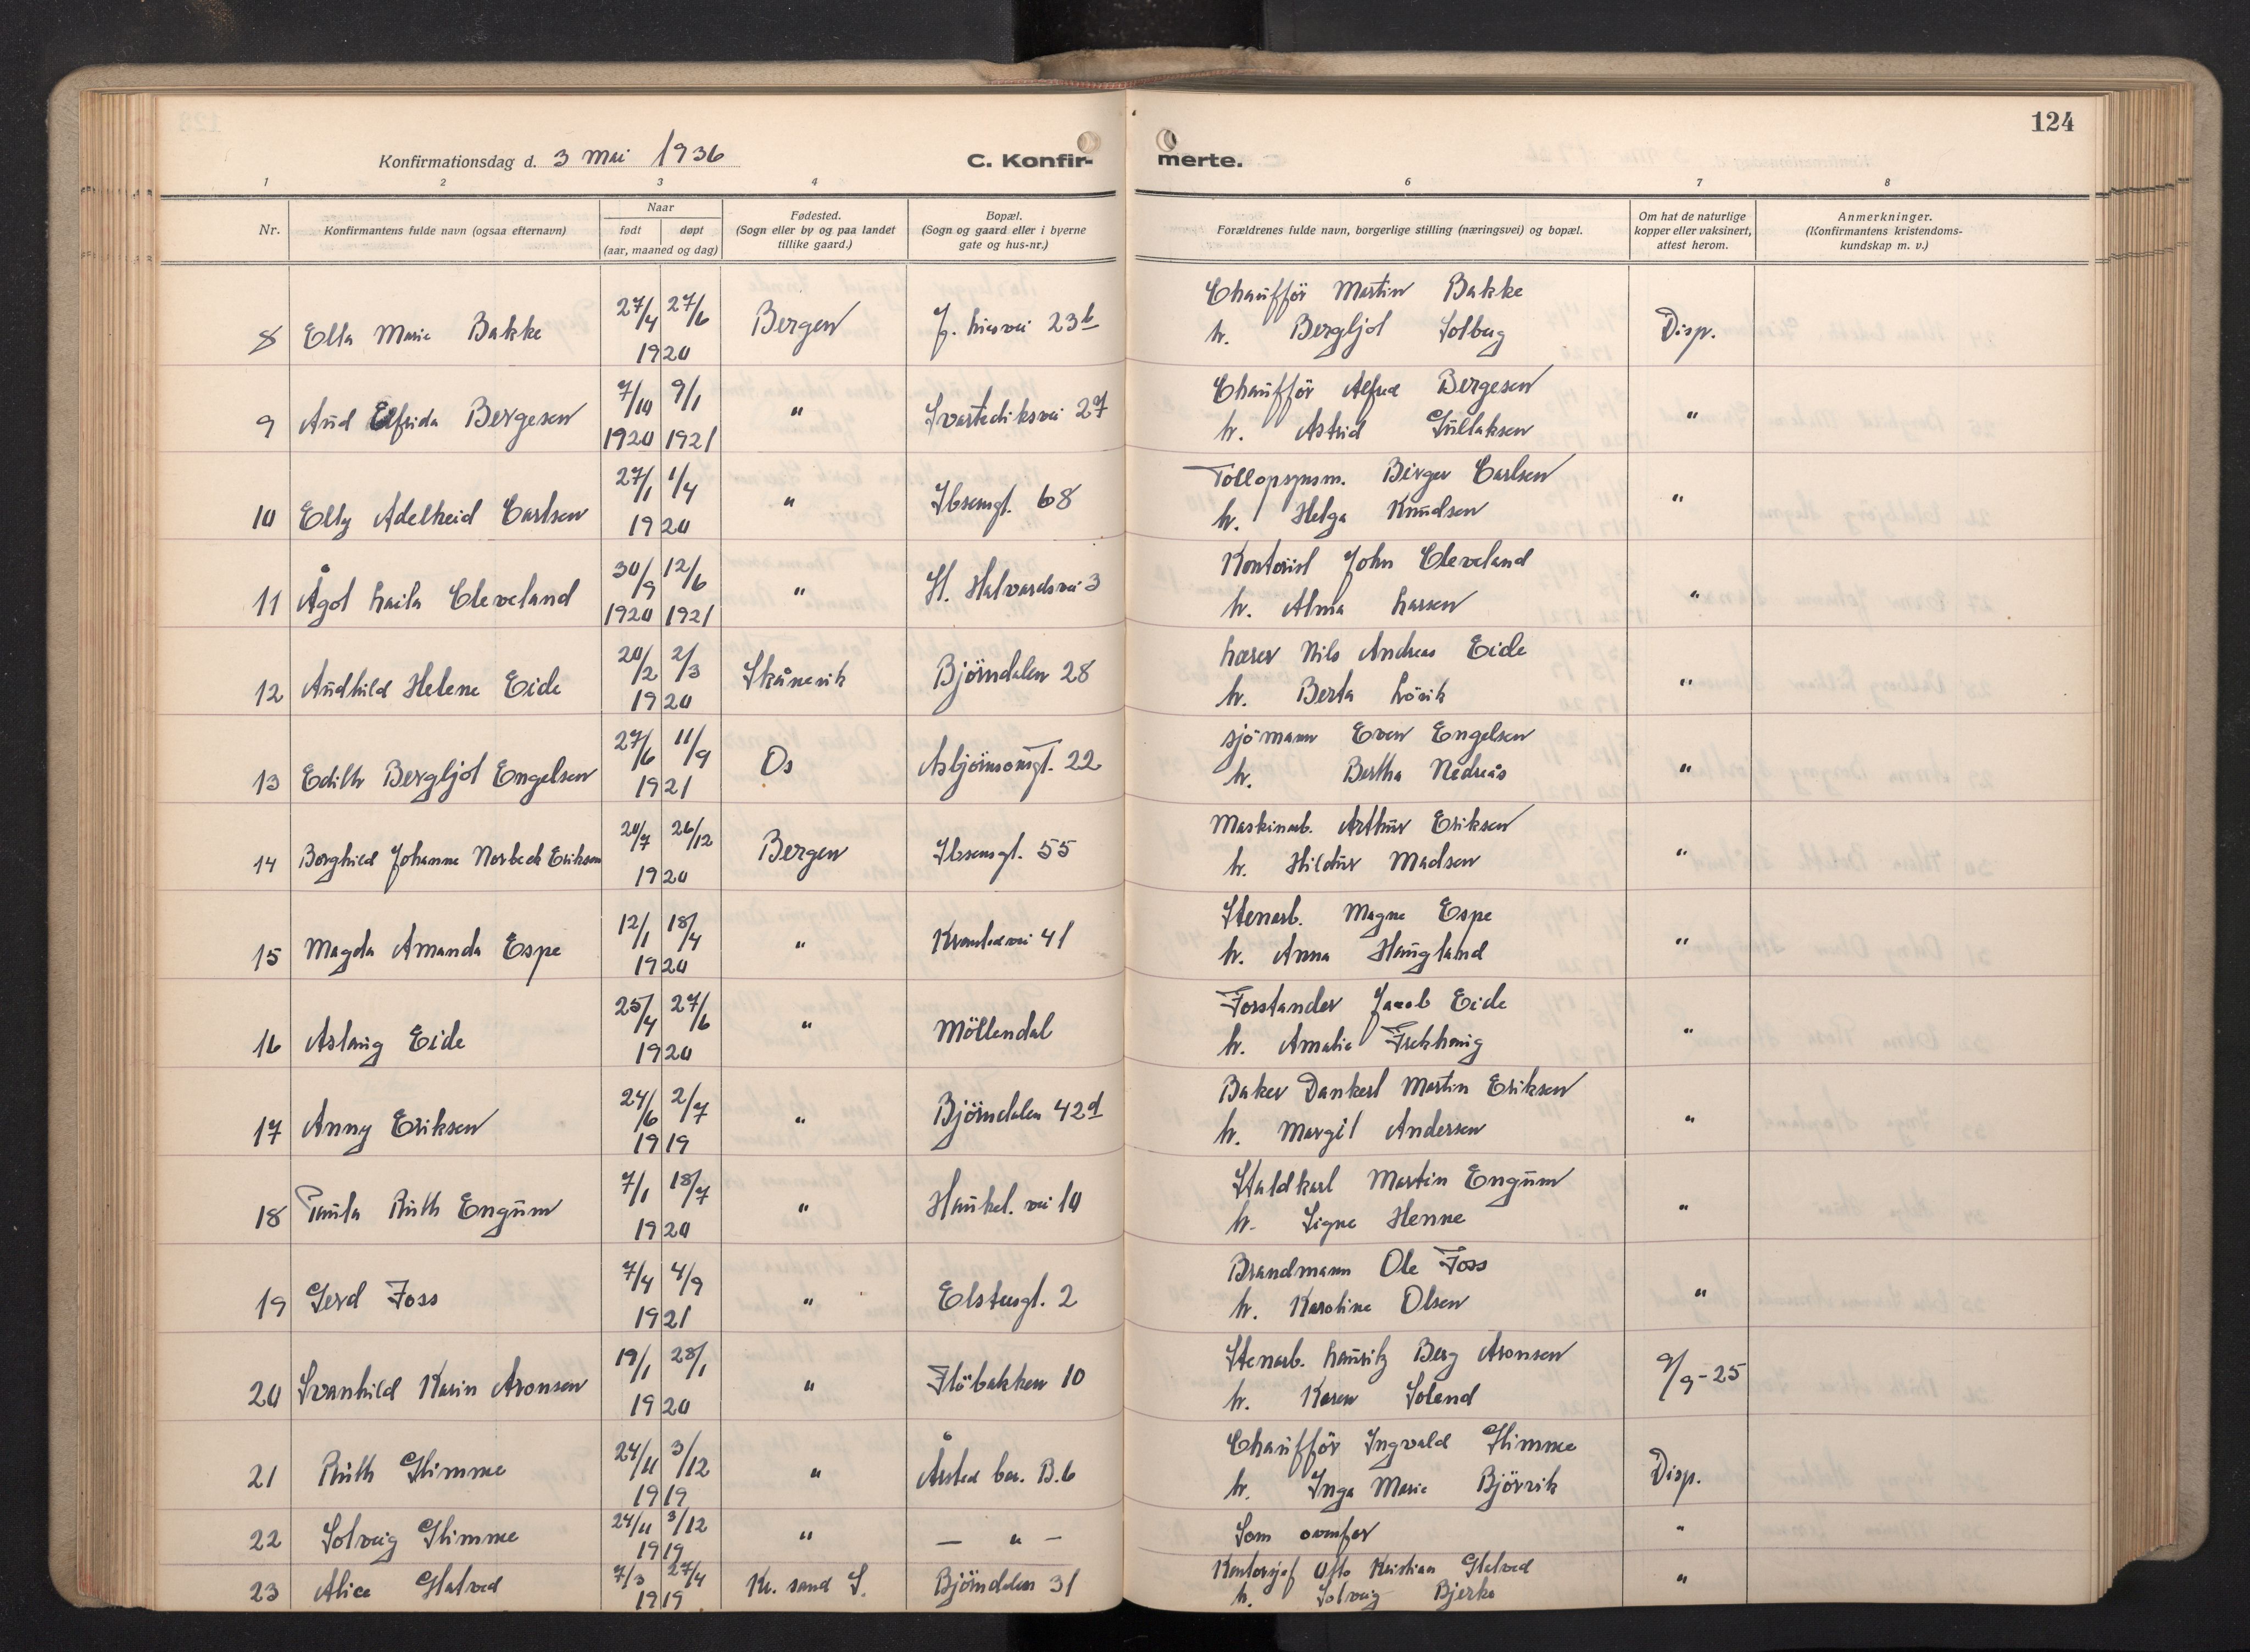 124
Konfirmationsdag d. 3 mai 1936 C. Konfir- merte.
1 2 3 4 6 7 8
Nr. Konfirmantens fulde navn (ogsaa efternavn) Naar født døpt (aar, maaned og dag) Fødested. (Sogn eller by og paa landet tillike gaard.) Bopæl. (Sogn og gaard eller i byerne gate og hus-nr.) Forældrenes fulde navn, borgerlige stilling (næringsvei) og bopæl. Om hat de naturlige kopper eller vaksinert, attest herom. Anmerkninger. (Konfirmantens kristendoms- kundskap m. v.)
27/4 27/6 Chaufför Martin Bakke
8 Ella Marie Bakke 1920 Bergen 23b h. Bergljot Solberg Disp.
7/10 9/1 Chaufför Alfred Bergesen
9 Aud Elfrida Bergesen 1920 1921 " Svartediksvei 27 h. Astrid Gullaksen "
27/1 1/4 Tollopsynsm. Birger Carlsen
10 Elly Adelheid Carlsen 1920 " Ibsensgt. 68 h. Helga Knudsen "
30/9 12/6 Kontorist John Cleveland
11 Ågot Laila Cleveland 1920 1921 " H. Halvardsvei 3 h. Alma Larsen "
20/2 2/3 Lærer Nils Andreas Eide
12 Audhild Helene Eide 1920 Skånevik Björndalen 28 h. Berta Lövik "
27/6 11/9 sjömann Even Engelsen
13 Edith Bergljot Engelsen 1921 Os Asbjörnsonsgt. 22 h. Bertha Nedreås "
20/7 26/12 Maskinarb. Arthur Eriksen
14 Borghild Johanne Norbeck Eriksen 1920 Bergen Ibsensgt. 55 h. Hildur Madsen "
12/1 18/4 Stenarb. Magne Espe
15 Magda Amanda Espe 1920 " 41 h. Anna Haugland "
25/4 27/6 Forstander Jacob Eide
16 Aslaug Eide 1920 " Möllendal h. Amalie Frekhaug "
24/6 2/7 Baker Dankert Martin Eriksen
17 Anny Eriksen 1919 " Björndalen 42d h. Margit Andersen "
7/1 18/7 Staldkarl Martin Engum
18 Paula Ruth Engum 1920 " Haukel. vei 10 h. Signe Henne "
7/4 4/9 Brandmann Ole Foss
19 Gerd Foss 1921 " Elstersgt. 2 h. Karoline Olsen "
19/1 28/1 Stenarb. Lauritz Berg Aronsen
20 Svanhild Karin Aronsen 1920 " Flöbakken 10 h. Karen Soland 9/9-25
24/11 3/12 Chaufför Ingvald Glimme
21 Ruth Glimme 1919 " Årstad bar. B.6 h. Inga Marie Björvik Disp.
22 Solveig Glimme 24/11 3/12 1919 " — " — Som ovenfor "
23 Alice Glatved 7/3 27/4 1919 Kr. sand S. Björndalen 31 Kontorsjef Otto Kristian Glatved "
h. Solveig Bjerke